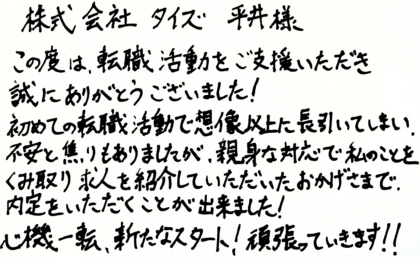 株式会社 タイズ 平井様
この度は、転職活動をご支援いただき
誠にありがとうございました!
初めての転職活動で想像以上に長引いてしまい、
不安と焦りもありましたが、親身な対応で私のことを
くみ取り求人を紹介していただいたおかげさまで、
内定をいただくことが出来ました!
心機一転、新たなスタート!頑張っていきます!!